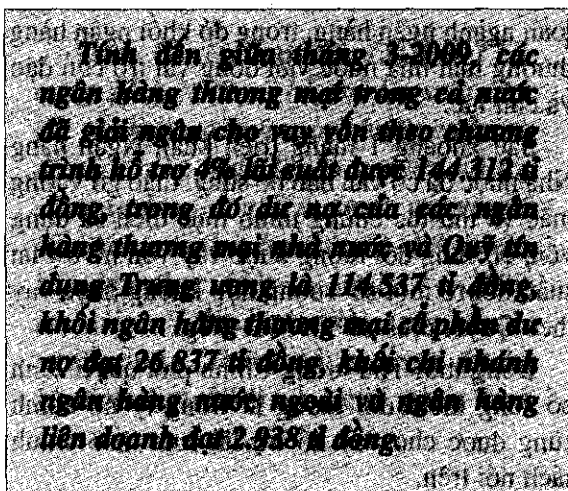 Tính đến giữa tháng 3-2009, các
ngân hàng thương mại trong cả nước
đã giải ngân cho vay vốn theo chương
trình hỗ trợ 4% lãi suất được 144.312 tỉ
đồng, trong đó dư nợ của các ngân
hàng thương mại nhà nước và Quỹ tín
dụng Trung ương là 114.537 tỉ đồng,
khối ngân hàng thương mại cổ phần dư
nợ đạt 26.837 tỉ đồng, khối chi nhánh
ngân hàng nước ngoài và ngân hàng
liên doanh đạt 2.938 tỉ đồng.